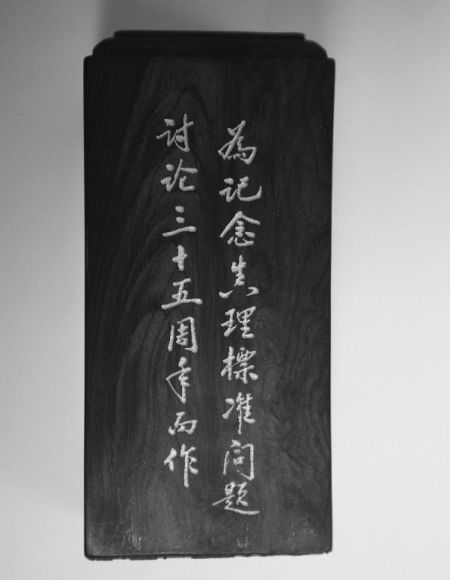 為记念真理標准问题
讨论三十五周年而作